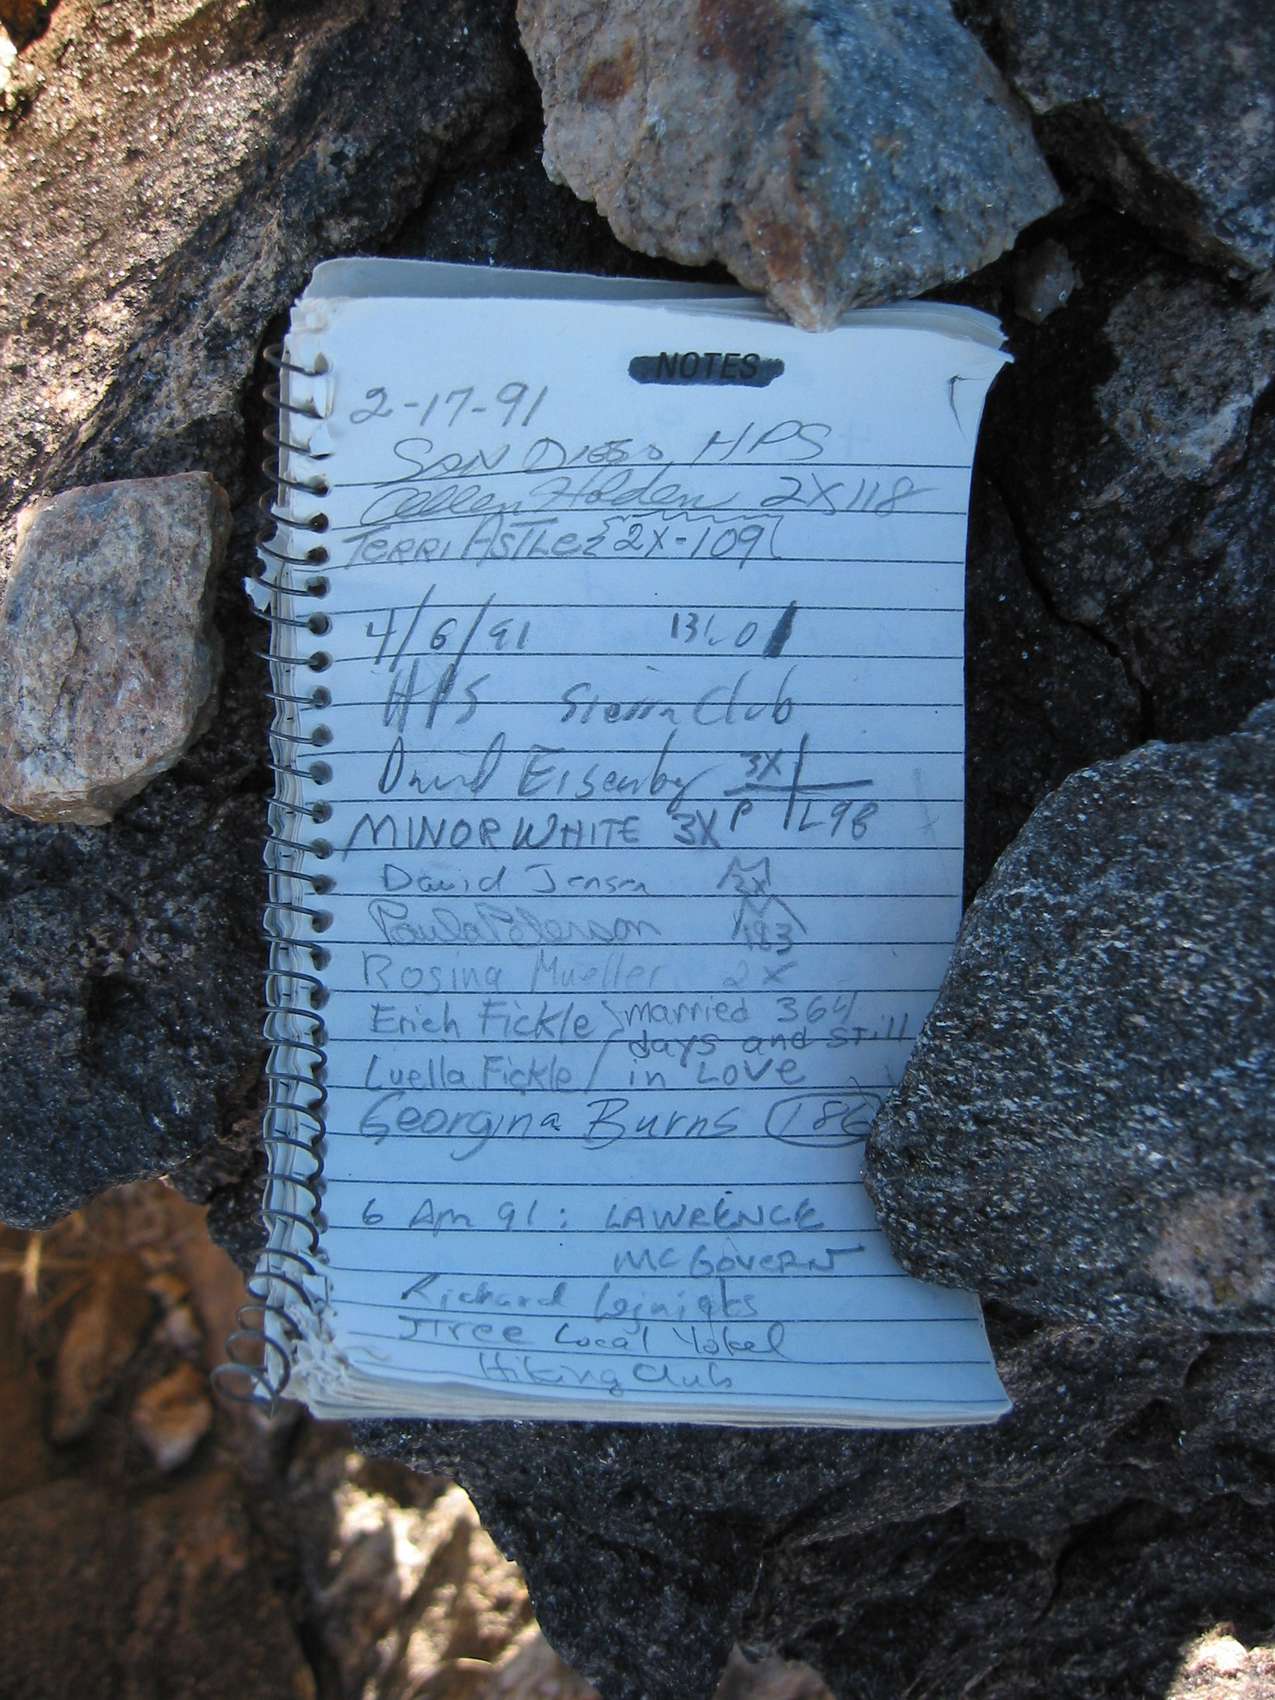 NOTES
2-17-91
SAN DIEGO HPS
Allen Holden 2X 118
TERRI ASTLE 2X-109
4/6/91
HPS Sierra Club
David 3X
P L98
MINOR WHITE 3X
David Jensen 2X
Paula Peterson 183
Rosina Mueller 2X
Erich Fickle married 364
days and still
Luella Fickle in LOVE
Georgina Burns 186
6 Apr 91: LAWRENCE
MCGOVERN
Richard
JTree Local Yokel
Hiking Club